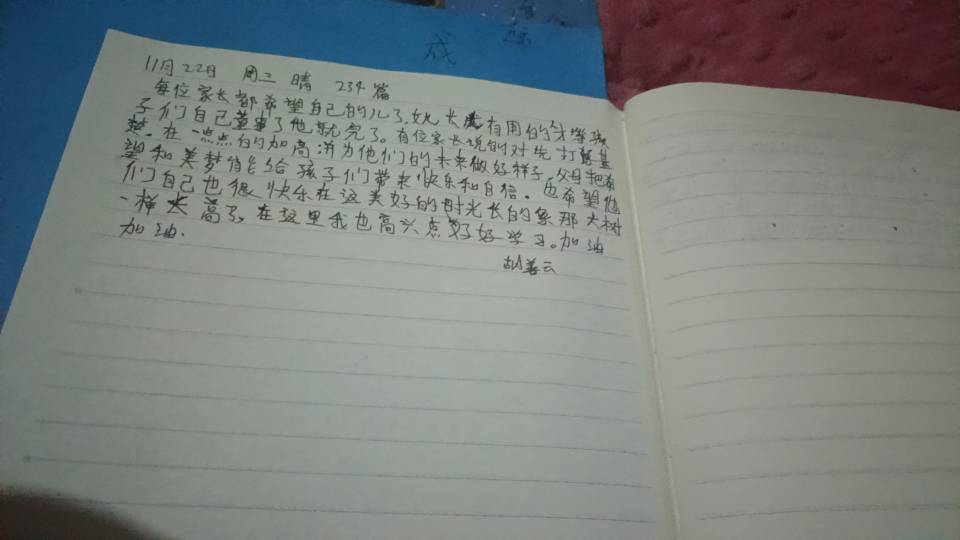 成
11月22日 周二 晴 234篇
每位家长都希望自己的儿子她长 有用的 学孩
子们自己董事了他就完了。有位家长说的对先打好基
楚.在一点点的加高 为他们的未来做好样子,父母把希
望和美梦 能给孩子们带来快乐和自信。也希望他
们自己也很快乐在这美好的时光长的象那大树
一样长高了,在这里我也高兴 好好学习。加油
加油.
胡善云